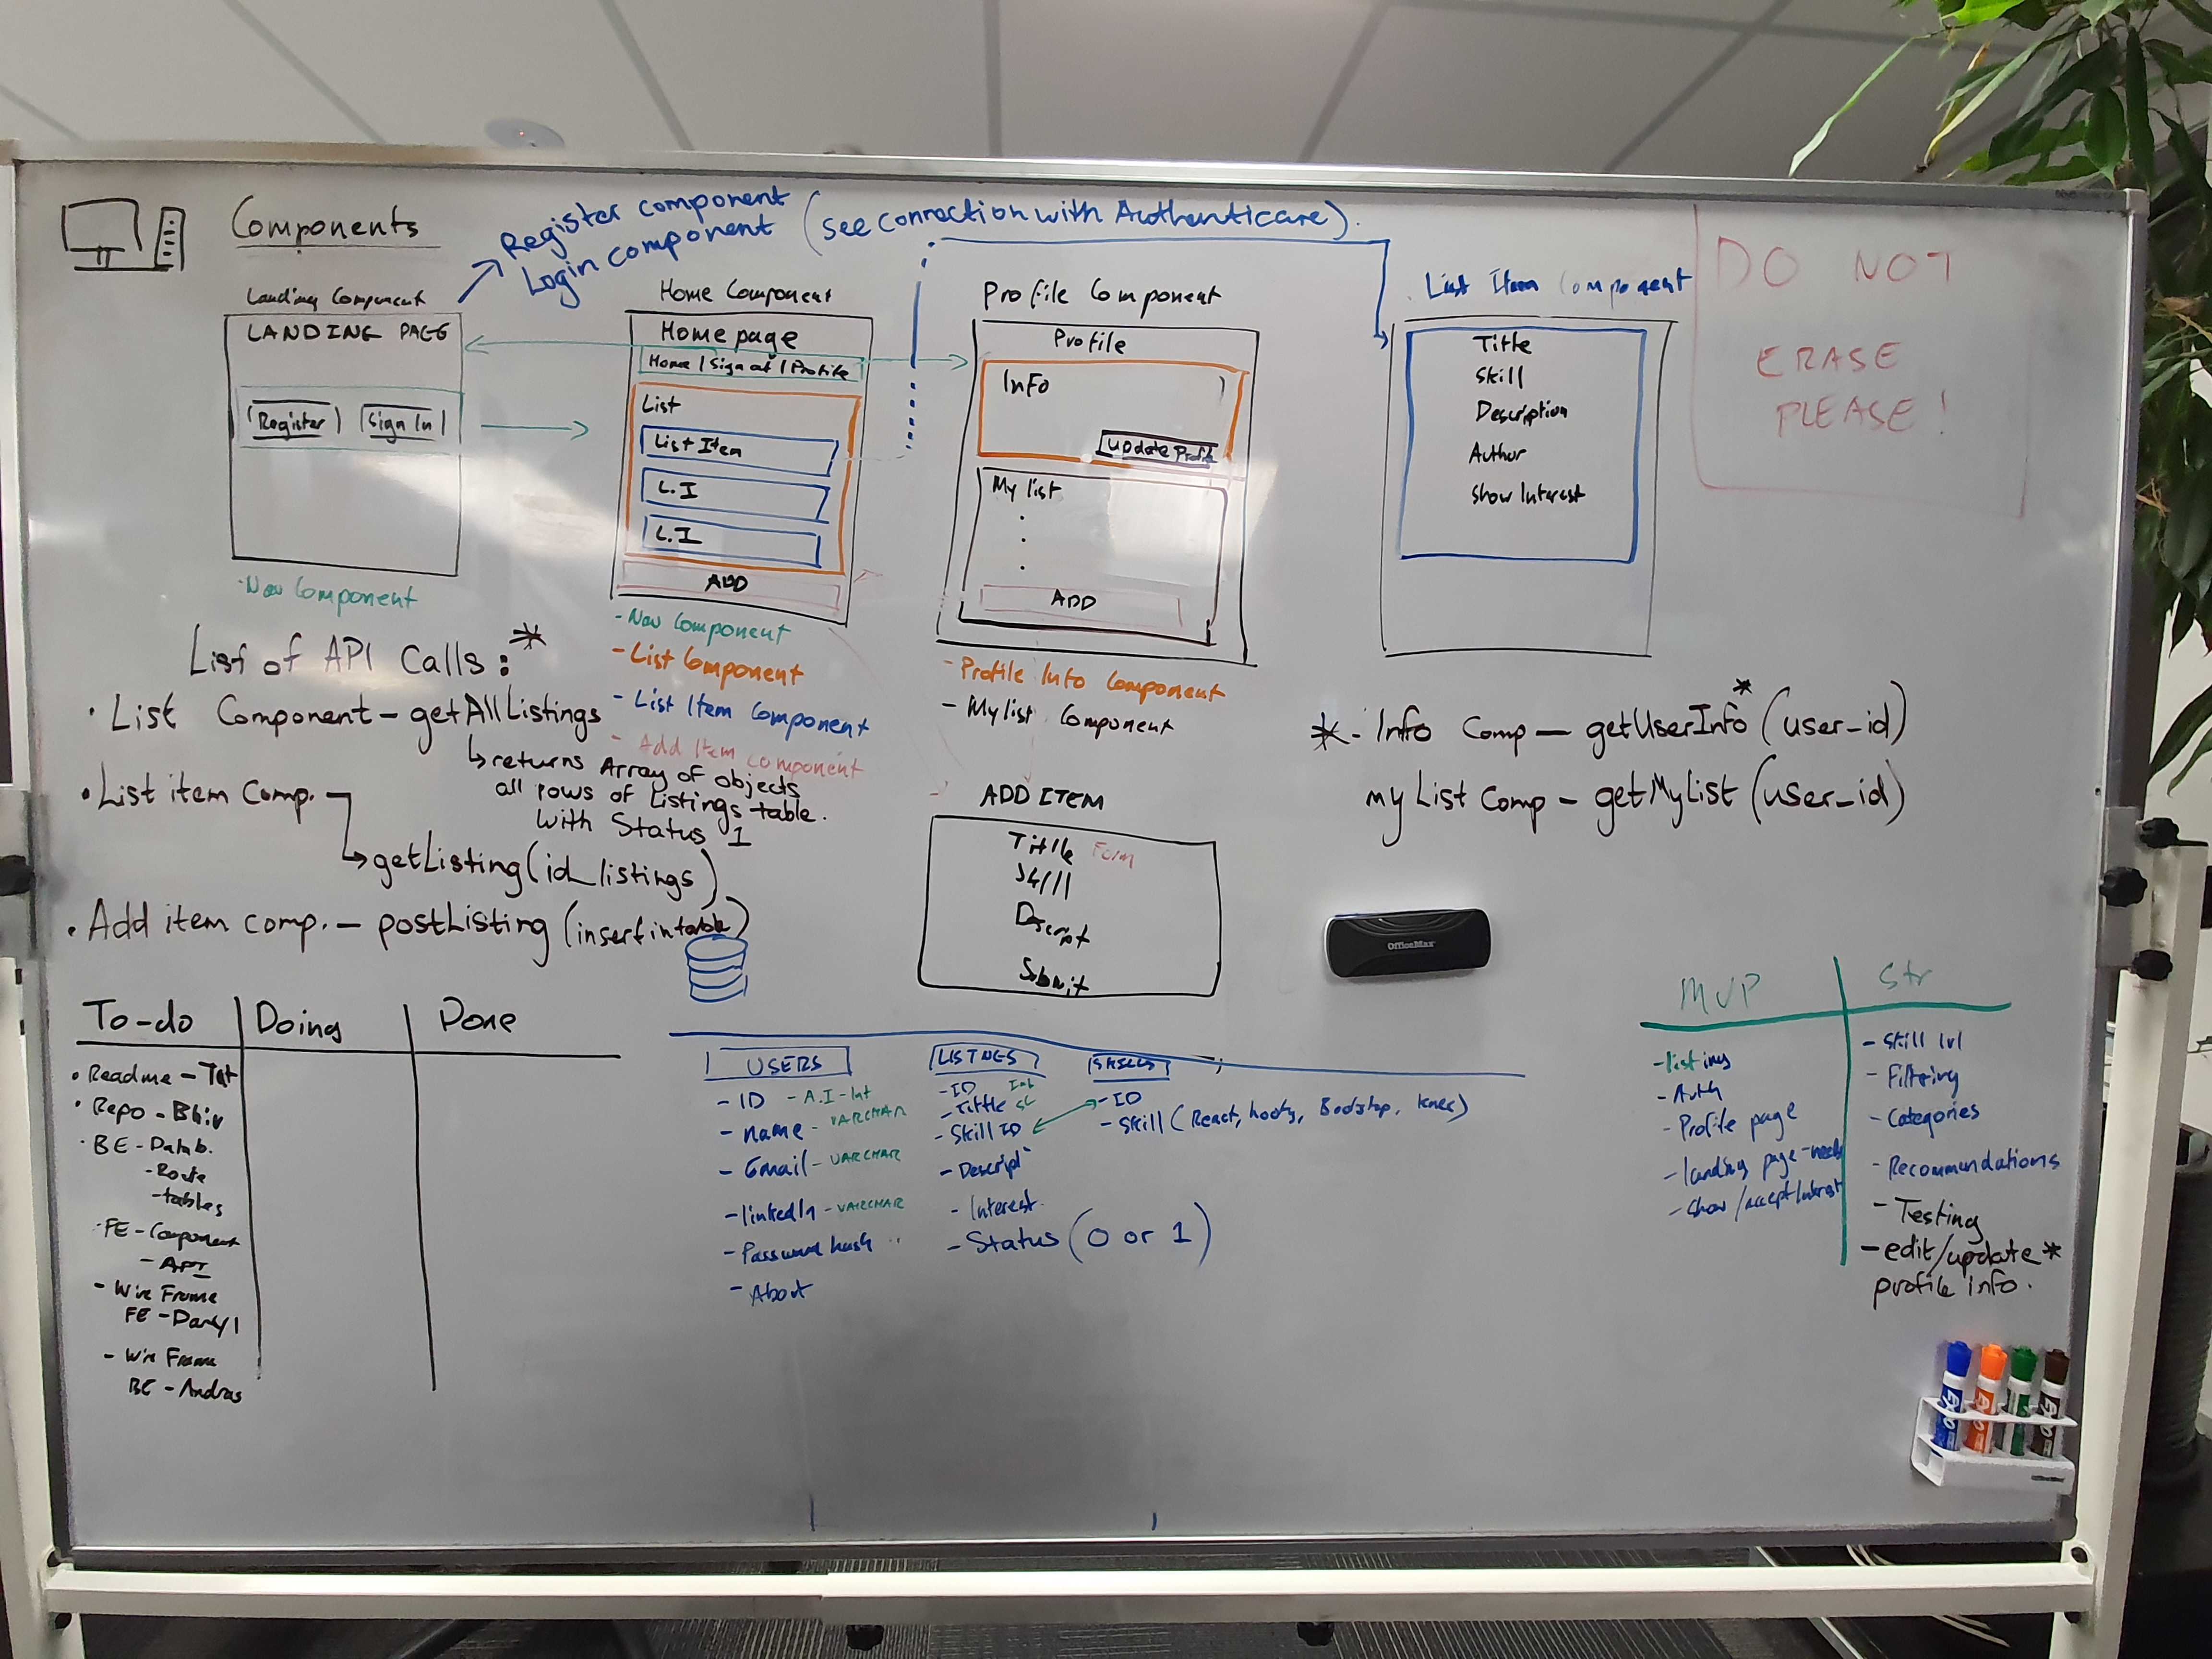 Components
Register component
Login component
(see connection with Authenticare).
DO NOT
ERASE
PLEASE!
Landing Component
LANDING PAGE
Register
Sign In
Nav Component
Home Component
Home page
Home | Sign out | Profile
List
List Item
L.I
L.I
ADD
- Nav Component
- List Component
- List Item Component
- Add Item component
Profile Component
Profile
Info
update Profile
My list
ADD
- Profile Info Component
- My list Component
List Item Component
Title
Skill
Description
Author
Show Interest
List of API Calls: *
• List Component - getAllListings
returns Array of objects
all rows of listings table.
with Status 1
• List item Comp.
getListing(id_listings)
• Add item comp. - postListing (insert in table)
* - Info Comp - getUserInfo* (user_id)
my List Comp - getMyList (user_id)
ADD ITEM
Title Form
Skill
Descript
Submit
OfficeMax
To-do
Doing
Done
• Readme - Tat
• Repo -
• BE - Datab.
- Route
- tables
• FE - Component
- API
- Wire Frame
FE - Darryl
- Wire Frame
BE - Andras
USERS
- ID - A.I - Int
- name - VARCHAR
- Email - VARCHAR
- linkedIn - VARCHAR
- Password hash "
- About
LISTNGS
- ID Int
- Tittle st
- Skill ID
- Descript
- Interest
- Status (0 or 1)
SKILLS
- ID
- Skill (React, Bootstrap, knex)
MVP
- listing
- Auth
- Profile page
- landing page -
- Show/accept Interest
Str
- Skill lvl
- Filtering
- Categories
- Recommendations
- Testing
- edit/update *
profile info.
EXPO
EXPO
EXPO
EXPO